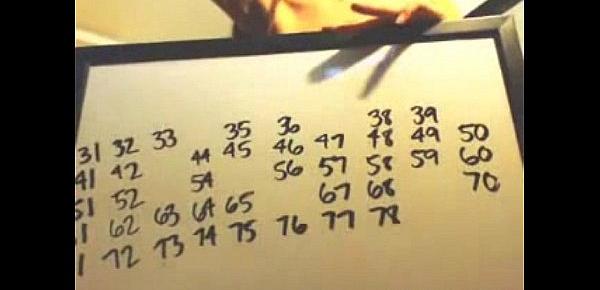 31 32 33 35 36 38 39
41 42 44 45 46 47 48 49 50
51 52 54 56 57 58 59 60
1 62 63 64 65 67 68 70
1 72 73 74 75 76 77 78